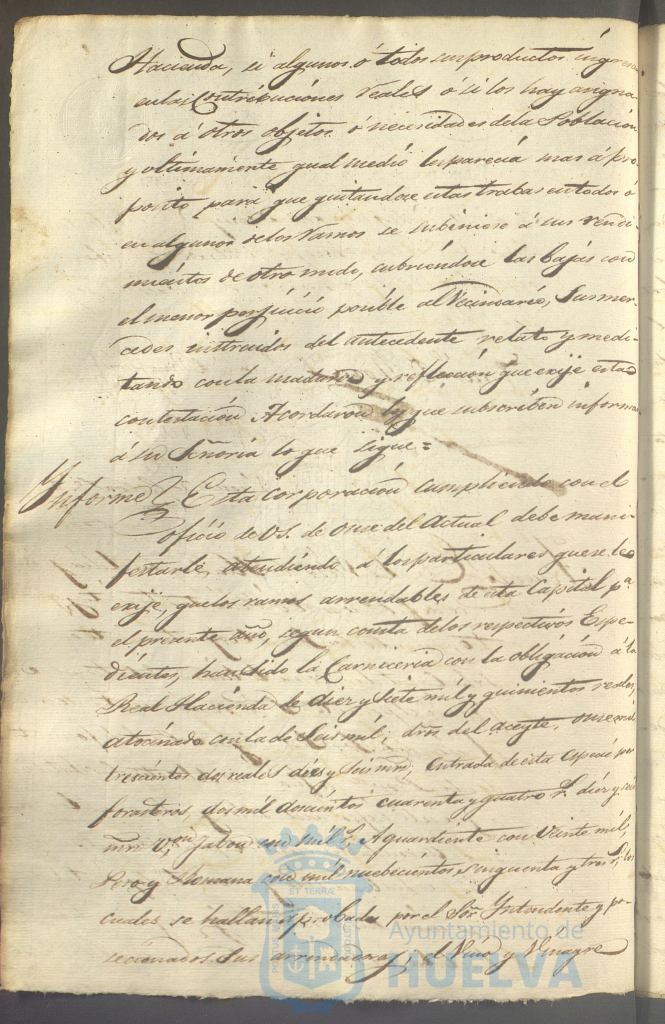 Hacienda, si algunos ó todos sus productos ingresan
en las Contribuciónes reales ó si los hay asigna-
dos á otros objetos ó necesidades dela Población
y ultimamente qual medió les parecia mas á pro-
posito para que quitandose estas trabas en todos ó
en algunos delos Ramos se subiniese á sus rendi-
mientos de otro modo, cubriendose las bajas con
el menor perjuicio posible al Vecindario, Sus mer-
cedes instruidos del antecedente relato y medi-
tando con la madurez y reflección que exije esta
contestación Acordaron los que subscriben informar
á su Señoria lo que sigue=
Informe Esta corporación cumpliendo con el
oficio de V.S. de once del Actual debe mani-
festarle, atendiendo á los particulares que se le
exije, que los ramos arrendables de esta Capital pa.
el presente año, segun consta delos respectivos Expe-
dientes, han sido la Carniceria con la obligación á la
Real Hacienda de diez y siete mil y quinientos reales,
atocinado con la de Seis mil, dros. del aceyte, once mil
trescientos dos reales dies y seis mrs, Entrada de esta especie por
forasteros, dos mil doscientos cuarenta y quatro rs. diez y seis
mrs. von. Jabon un mil rs. Aguardiente con Veinte mil,
Peso y Romana con mil nuebecientos sinquenta y tres rs. los
cuales se hallan aprobados por el Sor. Intendente y po-
secionados sus arrendadores; el Vino y Vinagre
ET TERRAE
Ayuntamiento de
HUELVA